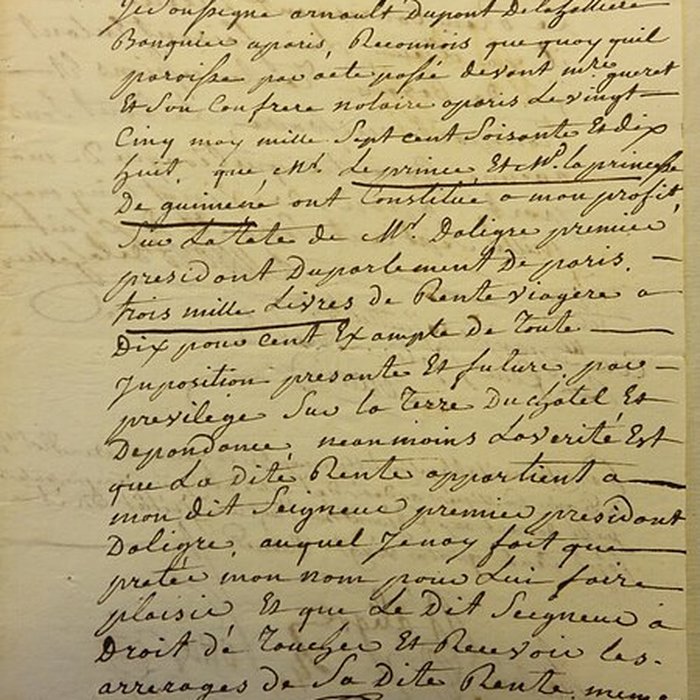 Je Soussigné arnault Dupont Delahalliere
Banquier aparis, Reconnois que quoy quil
paroisse par acte passé devant mre. gueret
Et Son Confrere notaire aparis Le vingt
Cinq may mille Sept cent Soisante Et dix
huit, que Mr. Le prince Et Mde. la princesse
De guimené ont Constitué a mon profit,
Sur La tete de Mr. Daligre premier
president Du parlement De paris. —
trois mille Livres de Rente viagere a
Dix pour cent Exampte de Toute —
Inposition presante Et future, par —
previlege Sur la Terre Du chatel Et
Dependance, neanmoins La verité Est
que La dite Rente appartient a —
mon dit Seigneur premier president
Daligre, auquel Jenay fait que —
pretée mon nom pour Lui faire
plaisir Et que Le Dit Seigneur à
Droit dé Toucher Et Recevoir les.
arrerages de Sa Dite Rente, meme